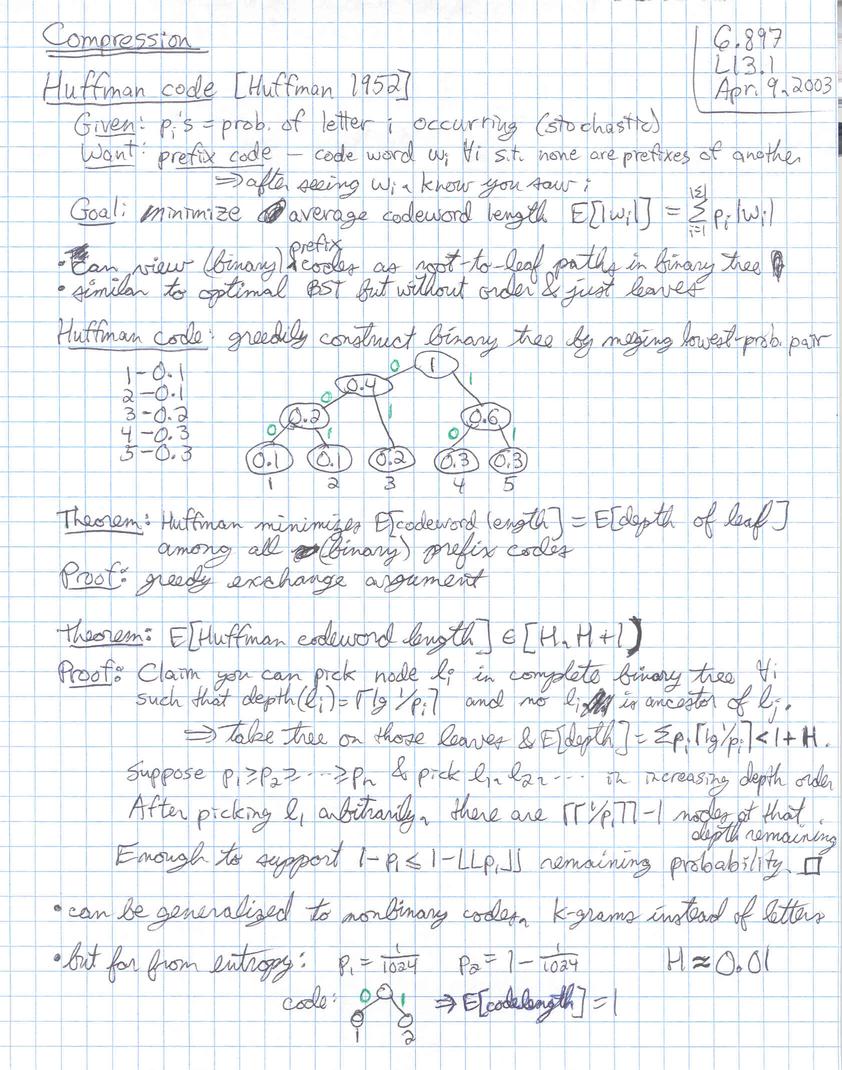 Compression
6.897
L13.1
Apr. 9, 2003
Huffman code [Huffman 1952]
Given: pᵢ's = prob. of letter i occurring (stochastic)
Want: prefix code — code word wᵢ ∀i s.t. none are prefixes of another
⇒ after seeing wᵢ, know you saw i
Goal: minimize average codeword length E[|wᵢ|] = Σ_{i=1}^{|Σ|} pᵢ|wᵢ|
• Can view (binary) prefix codes as root-to-leaf paths in binary tree
• similar to optimal BST but without order & just leaves
Huffman code: greedily construct binary tree by merging lowest-prob. pair
1 – 0.1
2 – 0.1
3 – 0.2
4 – 0.3
5 – 0.3
1
0 1
0.4
0 1
0.2 0.6
0 1 0 1
0.1 0.1 0.2 0.3 0.3
1 2 3 4 5
Theorem: Huffman minimizes E[codeword length] = E[depth of leaf]
among all (binary) prefix codes
Proof: greedy exchange argument
Theorem: E[Huffman codeword length] ∈ [H, H+1)
Proof: Claim you can pick node lᵢ in complete binary tree ∀i
such that depth(lᵢ) = ⌈lg 1/pᵢ⌉ and no lᵢ is ancestor of lⱼ.
⇒ take tree on those leaves & E[depth] = Σpᵢ⌈lg 1/pᵢ⌉ < 1 + H.
Suppose p₁ ≥ p₂ ≥ ... ≥ pₙ & pick l₁, l₂, ... in increasing depth order
After picking l₁ arbitrarily, there are ⌈⌈1/p₁⌉⌉ – 1 nodes at that
depth remaining
Enough to support 1 – p₁ ≤ 1 – ⌊⌊p₁⌋⌋ remaining probability. □
• can be generalized to nonbinary codes, k-grams instead of letters
• but far from entropy: p₁ = 1/1024 p₂ = 1 – 1/1024 H ≈ 0.01
code: 0 1 ⇒ E[codelength] = 1
1 2